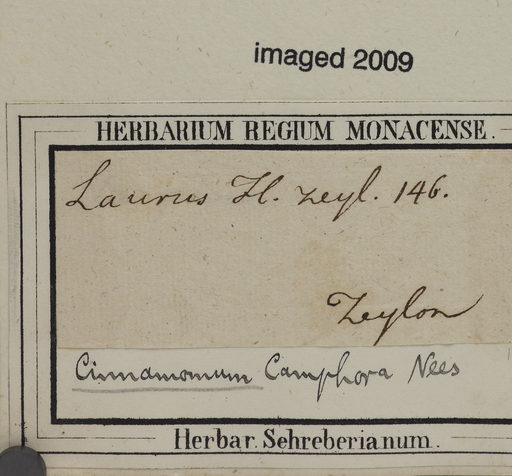 imaged 2009
HERBARIUM REGIUM MONACENSE.
Laurus Fl. zeyl. 146.
Zeylon
Cinnamomum Camphora Nees
Herbar. Schreberianum.